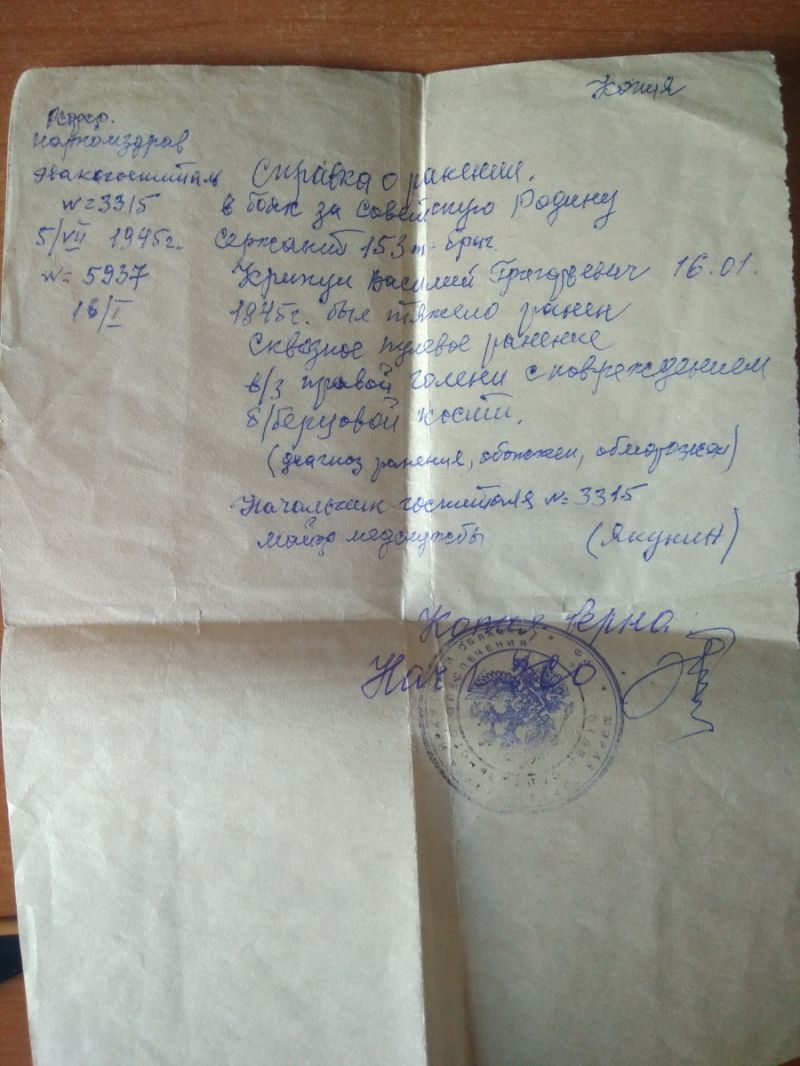 Копия
Наркомздрав
Эвакогоспиталь
№ 3315
5/VII 1945г.
№ 5937
16/I
Справка о ранении.
в боях за Советскую Родину
сержант 153 т. бриг.
Василий Григорьевич 16.01.
1945г. был тяжело ранен
Сквозное пулевое ранение
в/з правой голени с повреждением
б/берцовой кости.
(диагноз ранения, обожжен, обморожен)
Начальник госпиталя № 3315
майор медслужбы (Якунин)
Копия верна
Нач
ОБЕСПЕЧЕНИЯ
МЭРИЯ